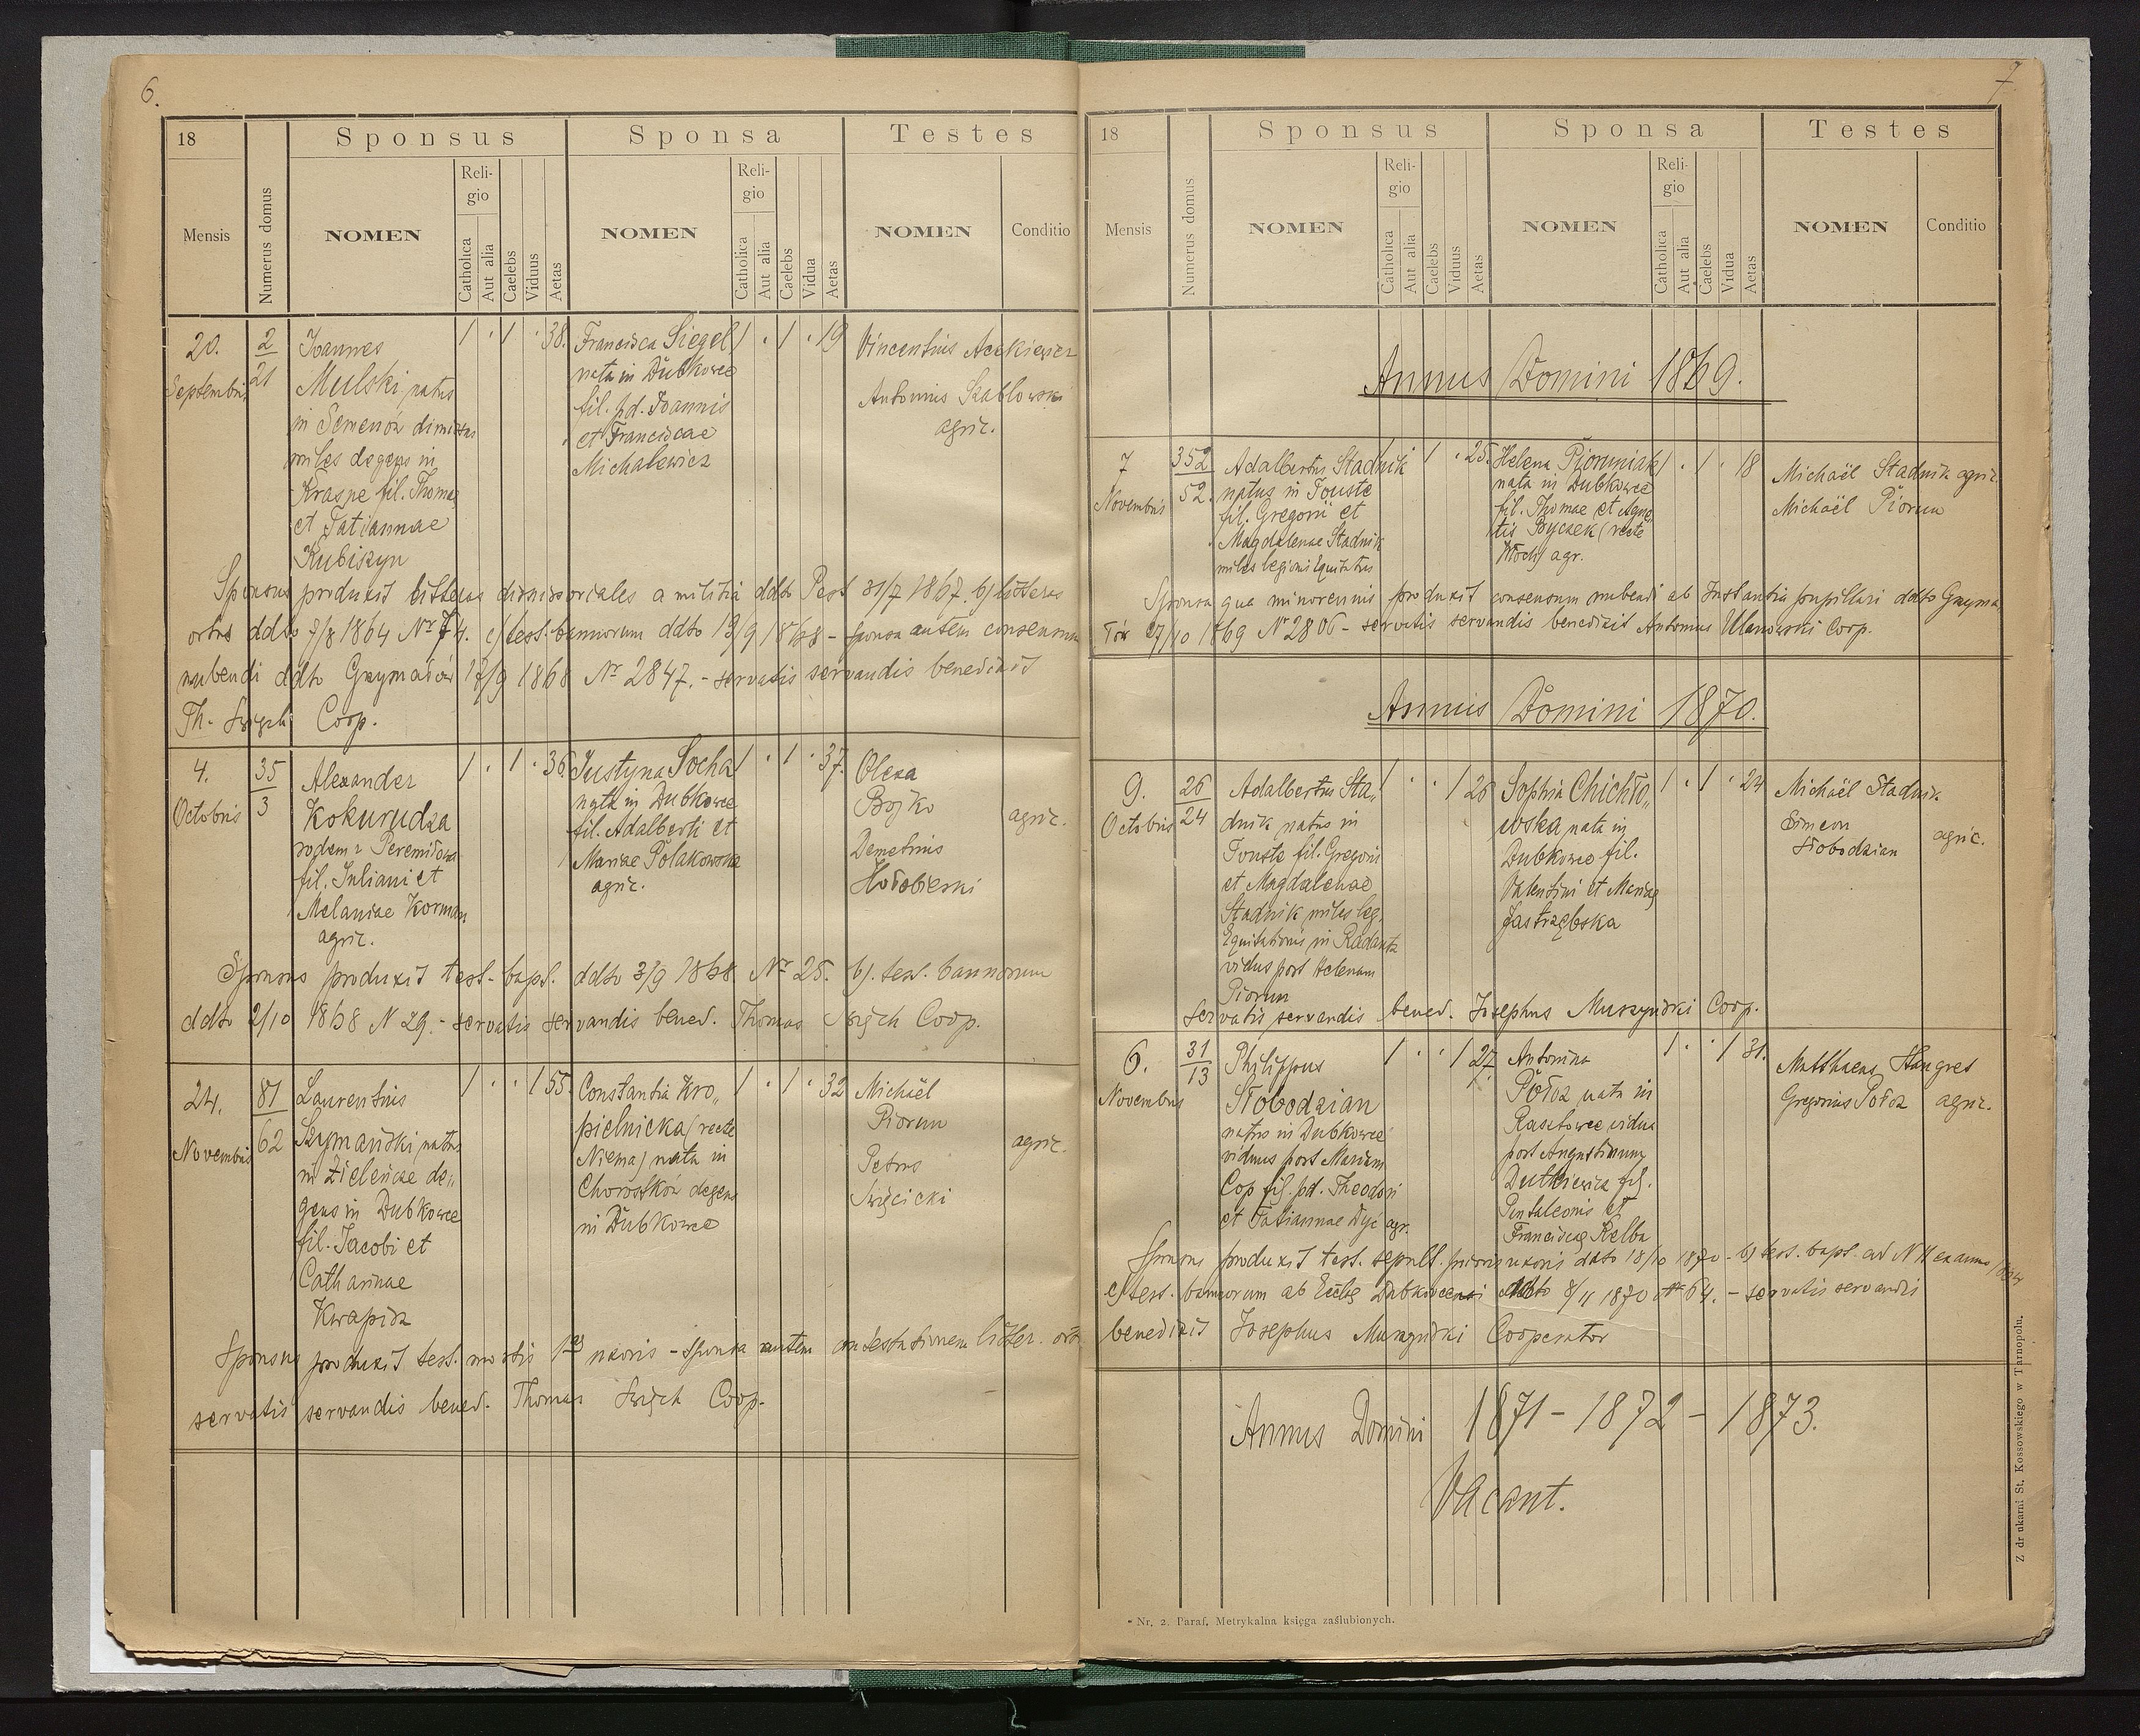 6.
18
Sponsus
Sponsa
Testes
Mensis
Numerus domus
NOMEN
Religio
Catholica
Aut alia
Caelebs
Viduus
Aetas
NOMEN
Religio
Catholica
Aut alia
Caelebs
Vidua
Aetas
NOMEN
Conditio
20.
Septembris
2
21
Joannes
Mulski, natus
in Semenów dimissus
miles degens in
Krasne fil. Thomae
et Tatiannae
Kubiszyn
1 . 1 . 38.
Francisca Siegel
nata in Dubkowce
fil. pd. Joannis
et Franciscae
Michalewicz
1 . 1 . 19
Vincentius
Antonius Szablowski
agric.
Sponsus produxit litteras dimissoriales a militia ddto Pest 31/7 1867. b) litteras
ortus ddto 7/8 1864 Nr 74. c) test. bannorum ddto 19/9 1868 - sponsa autem consensum
nubendi ddto Grzymałów 17/9 1868 Nr 2847. - servatis servandis benedixit
Th. Święch Coop.
4.
Octobris
35
3
Alexander
Kokurudza
rodem z Peremiłowa
fil. Juliani et
Melaniae Korman
agric.
1 . 1 . 36
Justyna Socha
nata in Dubkowce
fil. Adalberti et
Mariae Polakowska
agric.
1 . 1 . 37.
Olexa
Bojko
Demetrius
Hołobierki
agric.
Sponsus produxit test. bapt. ddto 3/9 1868 Nr 25. b). test. bannorum
ddto 2/10 1868 N 29. - servatis servandis bened. Thomas Święch Coop.
24.
Novembris
81
62
Laurentius
Szymański, natus
in Zieleńcze de„
gens in Dubkowce
fil. Jacobi et
Catharinae
Kwapisz
1 . . 1 55.
Constantia Kro„
pielnicka (recte
Niema) nata in
Chorostków degens
in Dubkowce
1 . 1 . 32
Michaël
Piorun
Petrus
Święcicki
agric.
Sponsus produxit test. mortis 1ae uxoris - sponsa autem contestationem litter. ort.
servatis servandis bened. Thomas Święch Coop.
7
18
Sponsus
Sponsa
Testes
Mensis
Numerus domus
NOMEN
Religio
Catholica
Aut alia
Caelebs
Viduus
Aetas
NOMEN
Religio
Catholica
Aut alia
Caelebs
Vidua
Aetas
NOMEN
Conditio
Annus Domini 1869.
7
Novembris
352
52.
Adalbertus Stadnik
natus in Touste
fil. Gregorii et
Magdalenae Stadnik
miles legionis Equitatus
1 . 25.
Helena Pioruniak
nata in Dubkowce
fil. Thomae et Agne„
tis Byczek (recte
Włoch) agr.
1 . 1 . 18
Michaël Stadnik agric.
Michaël Piorun
Sponsa qua minorennis produxit consensum nubendi ab Instantia pupillari ddto Grzyma„
łów 27/10 1869 Nr 2806 - servatis servandis benedixit Antonius Ulanowski Coop.
Annus Domini 1870.
9.
Octobris
26
24
Adalbertus Sta„
dnik natus in
Touste fil. Gregorii
et Magdalenae
Stadnik miles leg.
Equitationis in Radautz
vidus post Helenam
Piorun
1 . . 1 26
Sophia Chichło„
wska nata in
Dubkowce fil.
Valentini et Mariae
Jastrzębska
1 . 1 . 24
Michaël Stadnik
Simeon
Słobodzian
agric.
Servatis servandis bened. Josephus Muszyński Coop.
6.
Novembris
31
13
Philippus
Słobodzian
natus in Dubkowce
viduus post Mariam
Cop fil. pd. Theodori
et Tatiannae Dyć agr.
1 . . 1 27.
Antonina
Połoz nata in
Rasztowce vidua
post Augustinum
Dutkiewicz fil.
Pantaleonis et
Franciscae Kelba
1 . . 1 31.
Matthaeus Hungret
Gregorius Połoz
agric.
Sponsus produxit test. sepult. prioris uxoris ddto 18/10 1870 - b) test. bapt. ad N 11 ex anno
c) test. bannorum ab Eccles. Dubkovcensi ddto 8/11 1870 N 64. - servatis servandis
benedixit Josephus Muszyński Cooperator
Annus Domini 1871 - 1872 - 1873.
Vacant.
Nr. 2. Paraf. Metrykalna księga zaślubionych.
Z drukarni St. Kossowskiego w Tarnopolu.